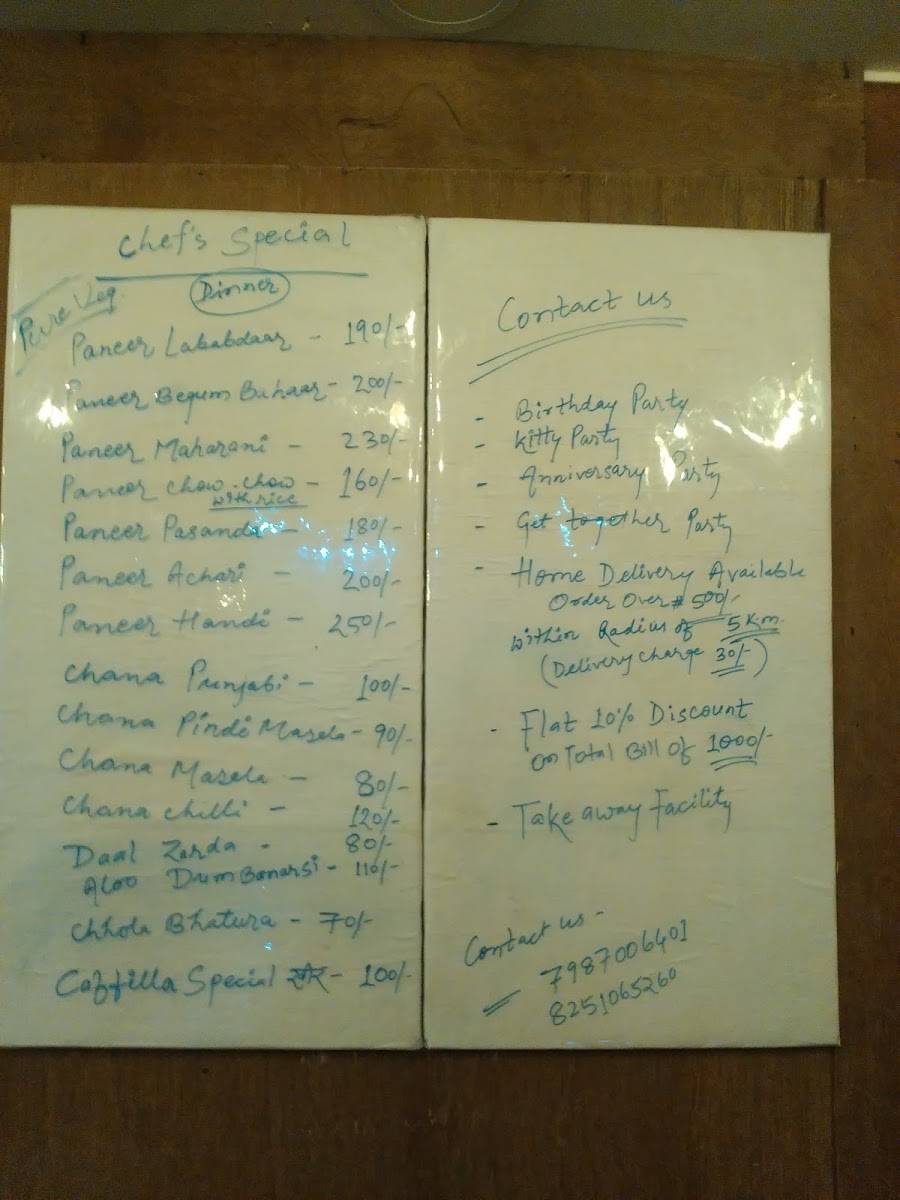 Chef's Special
Pure Veg
Dinner
Paneer Lababdaar - 190/-
Paneer Begum Buhaar - 200/-
Paneer Maharani - 230/-
Paneer chow-chow - 160/-
with rice
Paneer Pasanda - 180/-
Paneer Achari - 200/-
Paneer Handi - 250/-
Chana Punjabi - 100/-
Chana Pindi Masala - 90/-
Chana Masala - 80/-
Chana chilli - 120/-
Daal Zarda - 80/-
Aloo Dum Banarsi - 110/-
Chhola Bhatura - 70/-
Caffilla Special खीर - 100/-
Contact us
- Birthday Party
- Kitty Party
- Anniversary Party
- Get together Party
- Home Delivery Available
Order Over # 500/-
within Radius of 5 Km.
(Delivery Charge 30/-)
- Flat 10% Discount
on Total Bill of 1000/-
- Take away Facility
Contact us -
7987006401
8251065260